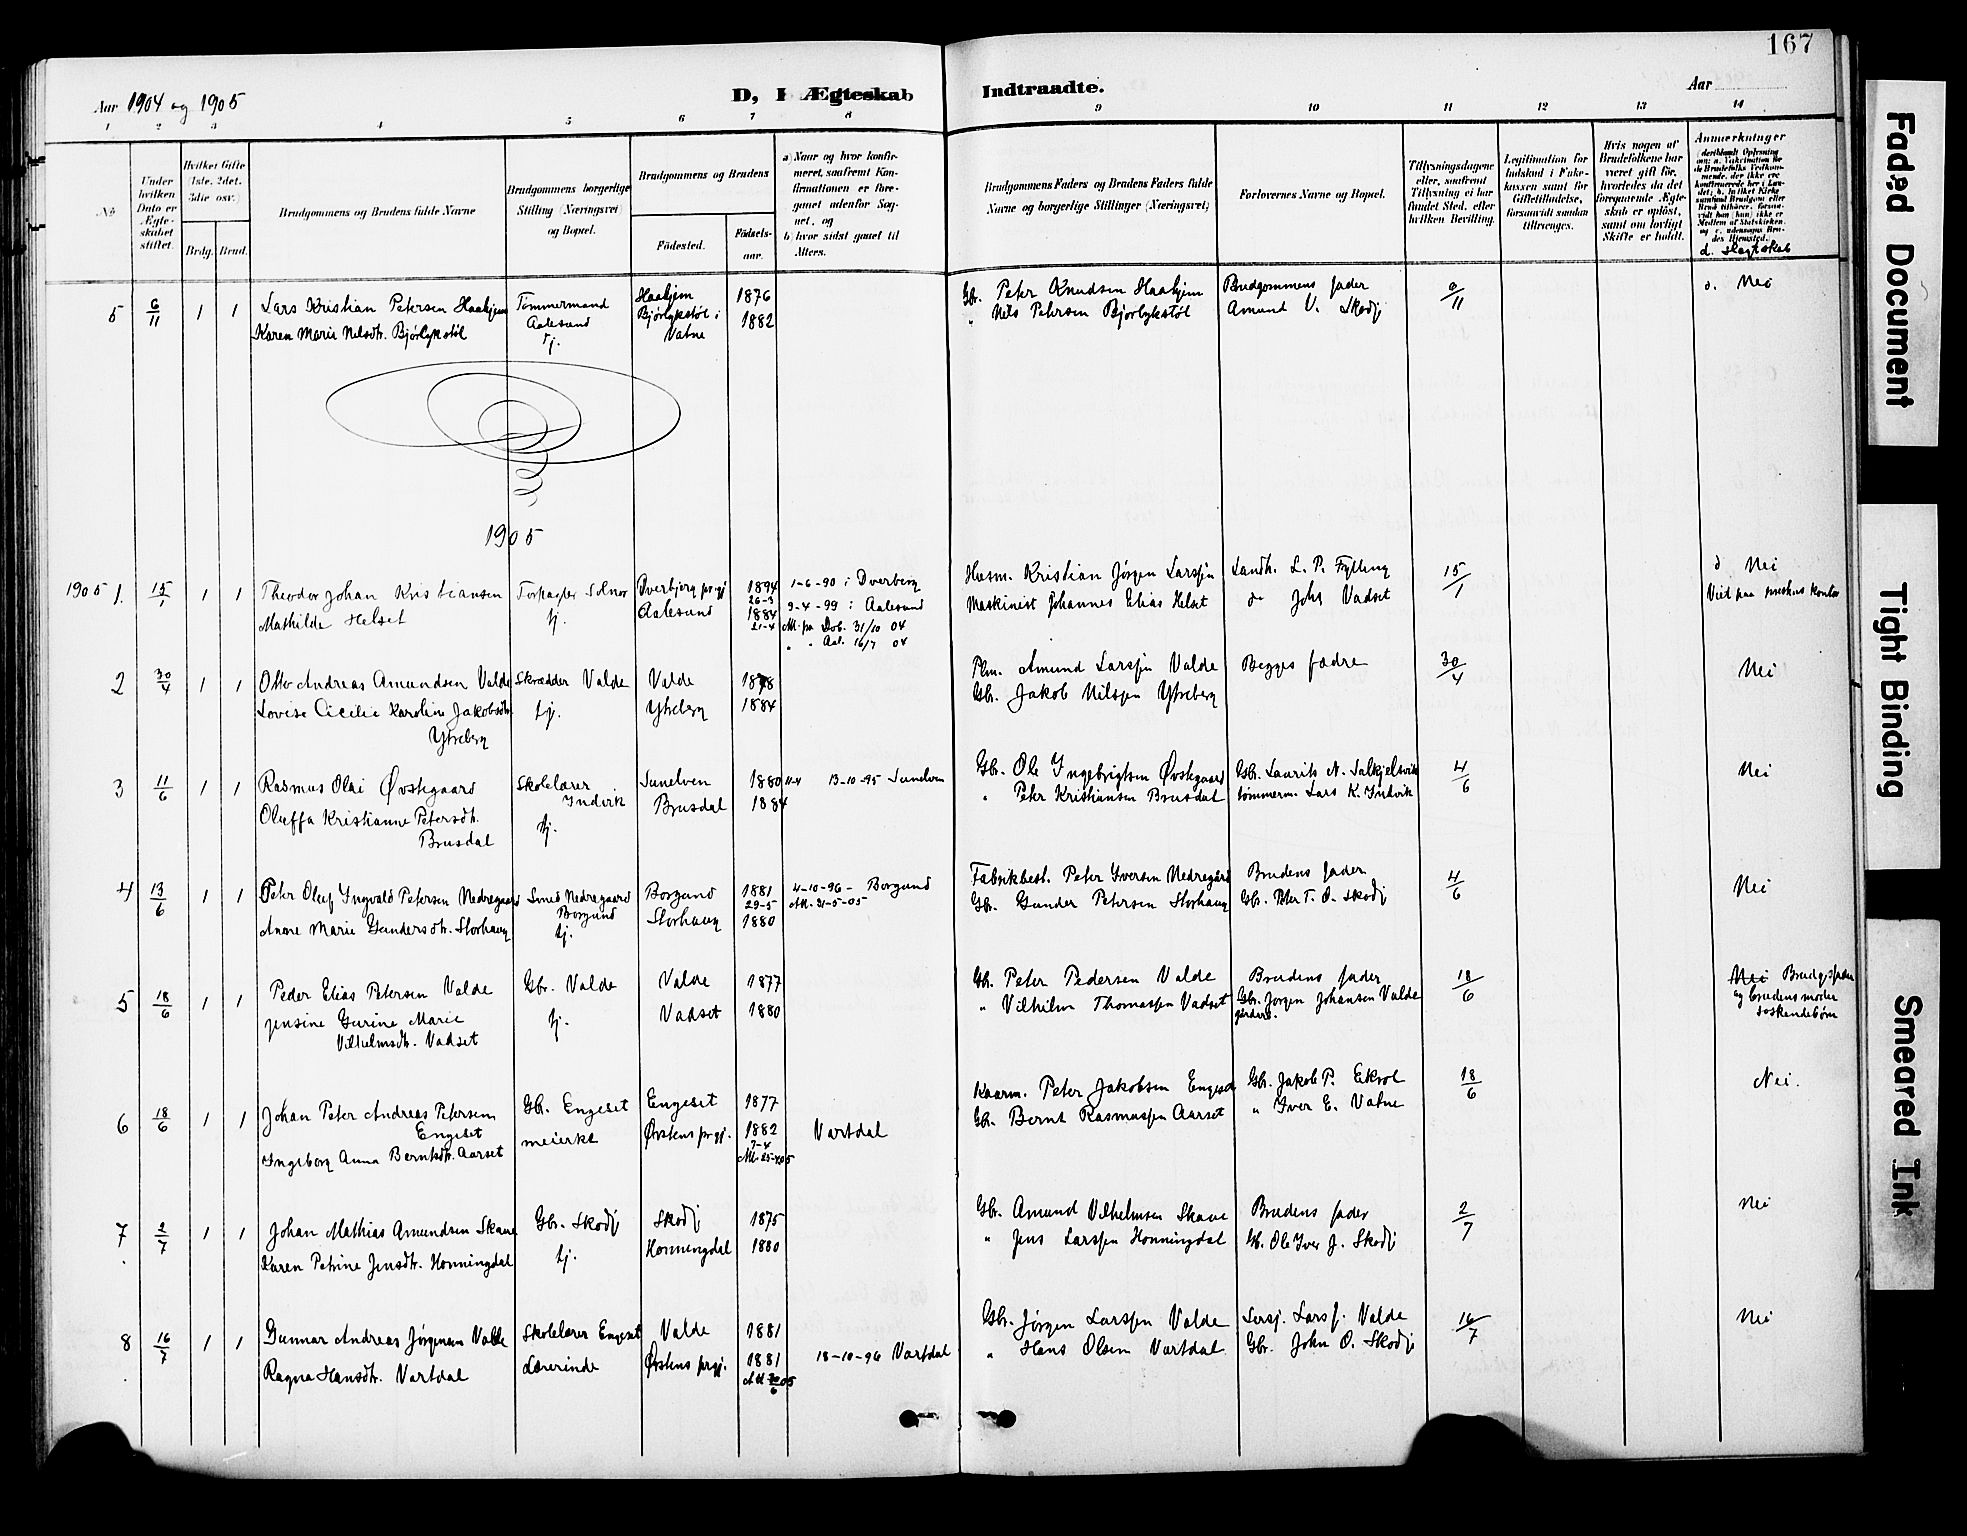 167
Aar 1904 og 1905
D, I Ægteskab Indtraadte.
Aar
1 2 3 4 5 6 7 8 9 10 11 12 13 14
No
Under hvilken Dato er Ægteskabet stiftet.
Hvilket Gifte (1ste, 2det, 3die osv.)
Brdg. Brud.
Brudgommens og Brudens fulde Navne
Brudgommens borgerlige Stilling (Næringsvei) og Bopæl.
Brudgommens og Brudens
Födested.
Födselsaar.
a) Naar og hvor konfirmeret, saafremt Konfirmationen er foregaaet udenfor Sognet, og
b) hvor sidst gaaet til Alters.
Brudgommens Faders og Brudens Faders fulde Navne og borgerlige Stillinger (Næringsvei)
Forlovernes Navne og Bopæl.
Tillysningsdagene eller, saafremt Tillysning ei har fundet Sted, efter hvilken Bevilling.
Legitimation for Indskud i Enkekassen samt for Giftetilladelse, forsaavidt saadan tiltrænges.
Hvis nogen af Brudefolkene har været gift før, hvorledes da det foregaaende Ægteskab er opløst, samt om lovligt Skifte er holdt.
Anmerkninger
d. slægtskab
5 6/11 1 1 Lars Kristian Petersen Haakjem Tømmermand Haakjem 1876 Gbr. Peter Knudsen Haakjem Brudgommens fader 11 d. Nei
Karen Marie Nilsdtr. Bjørlykstøl Aalesund Bjørlykstøl i 1882 " Nils Petersen Bjørlykstøl Amund V. Skodj
tj. Vatne
1905
1905 1. 15/1 1 1 Theodor Johan Kristiansen Forpagter Solnør Dverbjerg prgj 1894 1-6-90 i Dverberg Husm. Kristian Jørgen Larsen Landh. L. P. Fylling 15/1 d Nei
26-3
Mathilde Helset tj. Aalesund 1884 9-4-99 i Aalesund Maskinist Johannes Elias Helset do Johs Vadset Viet paa prestens kontor
21-4 Att. fra Dob. 31/10 04
" " Aal. 16/7 04
2 30/4 1 1 Otto Andreas Amundsen Valde Skrædder Valde Valde 1878 Plm. Amund Larsen Valde Begges fædre 30/4 Nei
Lovise Cicilie Karoline Jakobsdtr. tj. Ytreberg 1884 Gbr. Jakob Nilsen Ytreberg
Ytreberg
3 11/6 1 1 Rasmus Olai Øvstegaard Skolelærer Sunelven 1880 11-4 13-10-95 Sunelven Gbr. Ole Ingebrigtsen Øvstegaard Gbr. Laurits N. Salkjelsvik 4/6 Nei
Oluffa Kristianne Petersdtr. Indvik Brusdal 1884 " Peter Kristiansen Brusdal tømmerm. Lars K. Indvik
Brusdal tj.
4 13/6 1 1 Peter Oluf Ingvald Petersen Nedregaard Smed Nedregaard Borgund 1881 4-10-96 - Borgund Fabrikbest. Peter Iversen Nedregård Brudens fader 4/6 Nei
Borgund 29-5 Att. 31-5-05
Anne Marie Gundersdtr. Storhaug tj. Storhaug 1880 Gbr. Gunder Petersen Storhaug Gbr. Peter T. O. Skodj
5 18/6 1 1 Peder Elias Petersen Valde Gbr. Valde Valde 1877 Gbr. Peter Pedersen Valde Brudens fader 18/6 Nei Brudg. fader
Jensine Gurine Marie tj. Vadset 1880 " Vilhelm Thomassen Vadset Gbr. Jørgen Johansen Valde og brudens moder
Vilhelmsdtr. Vadset søskendebørn
6 18/6 1 1 Johan Peter Andreas Petersen Gbr. Engeset Engeset 1877 Kaarm. Peter Jakobsen Engeset Gbr. Jakob P. Ekrol 18/6 Nei.
Engeset meierke Ørstens prgj. 1882 Vartdal Gbr. Bernt Rasmussen Aarset " Iver E. Vatne
7-4
Ingeborg Anna Berntsdtr. Aarset Att. 25-4 05
7 2/7 1 1 Johan Mathias Amundsen Skaue Gbr. Skodj Skodj 1875 Gbr. Amund Vilhelmsen Skaue Brudens fader 2/7 Nei
Karen Petrine Jensdtr. Honningdal tj. Honningdal 1880 " Jens Larsen Honningdal Gb. Ole Iver J. Skodj
8 16/7 1 1 Gunnar Andreas Jørgensen Valde Skolelærer Engeset Valde 1881 Gbr. Jørgen Larsen Valde Sersj. Lars J. Valde 16/7 Nei
Ragna Hansdtr. Vartdal Lærerinde Ørstens prgj. 1881 18-10-96 Vartdal " Hans Olsen Vartdal Gbr. John O. Skodj
Faded Document
Tight Binding
Smeared Ink